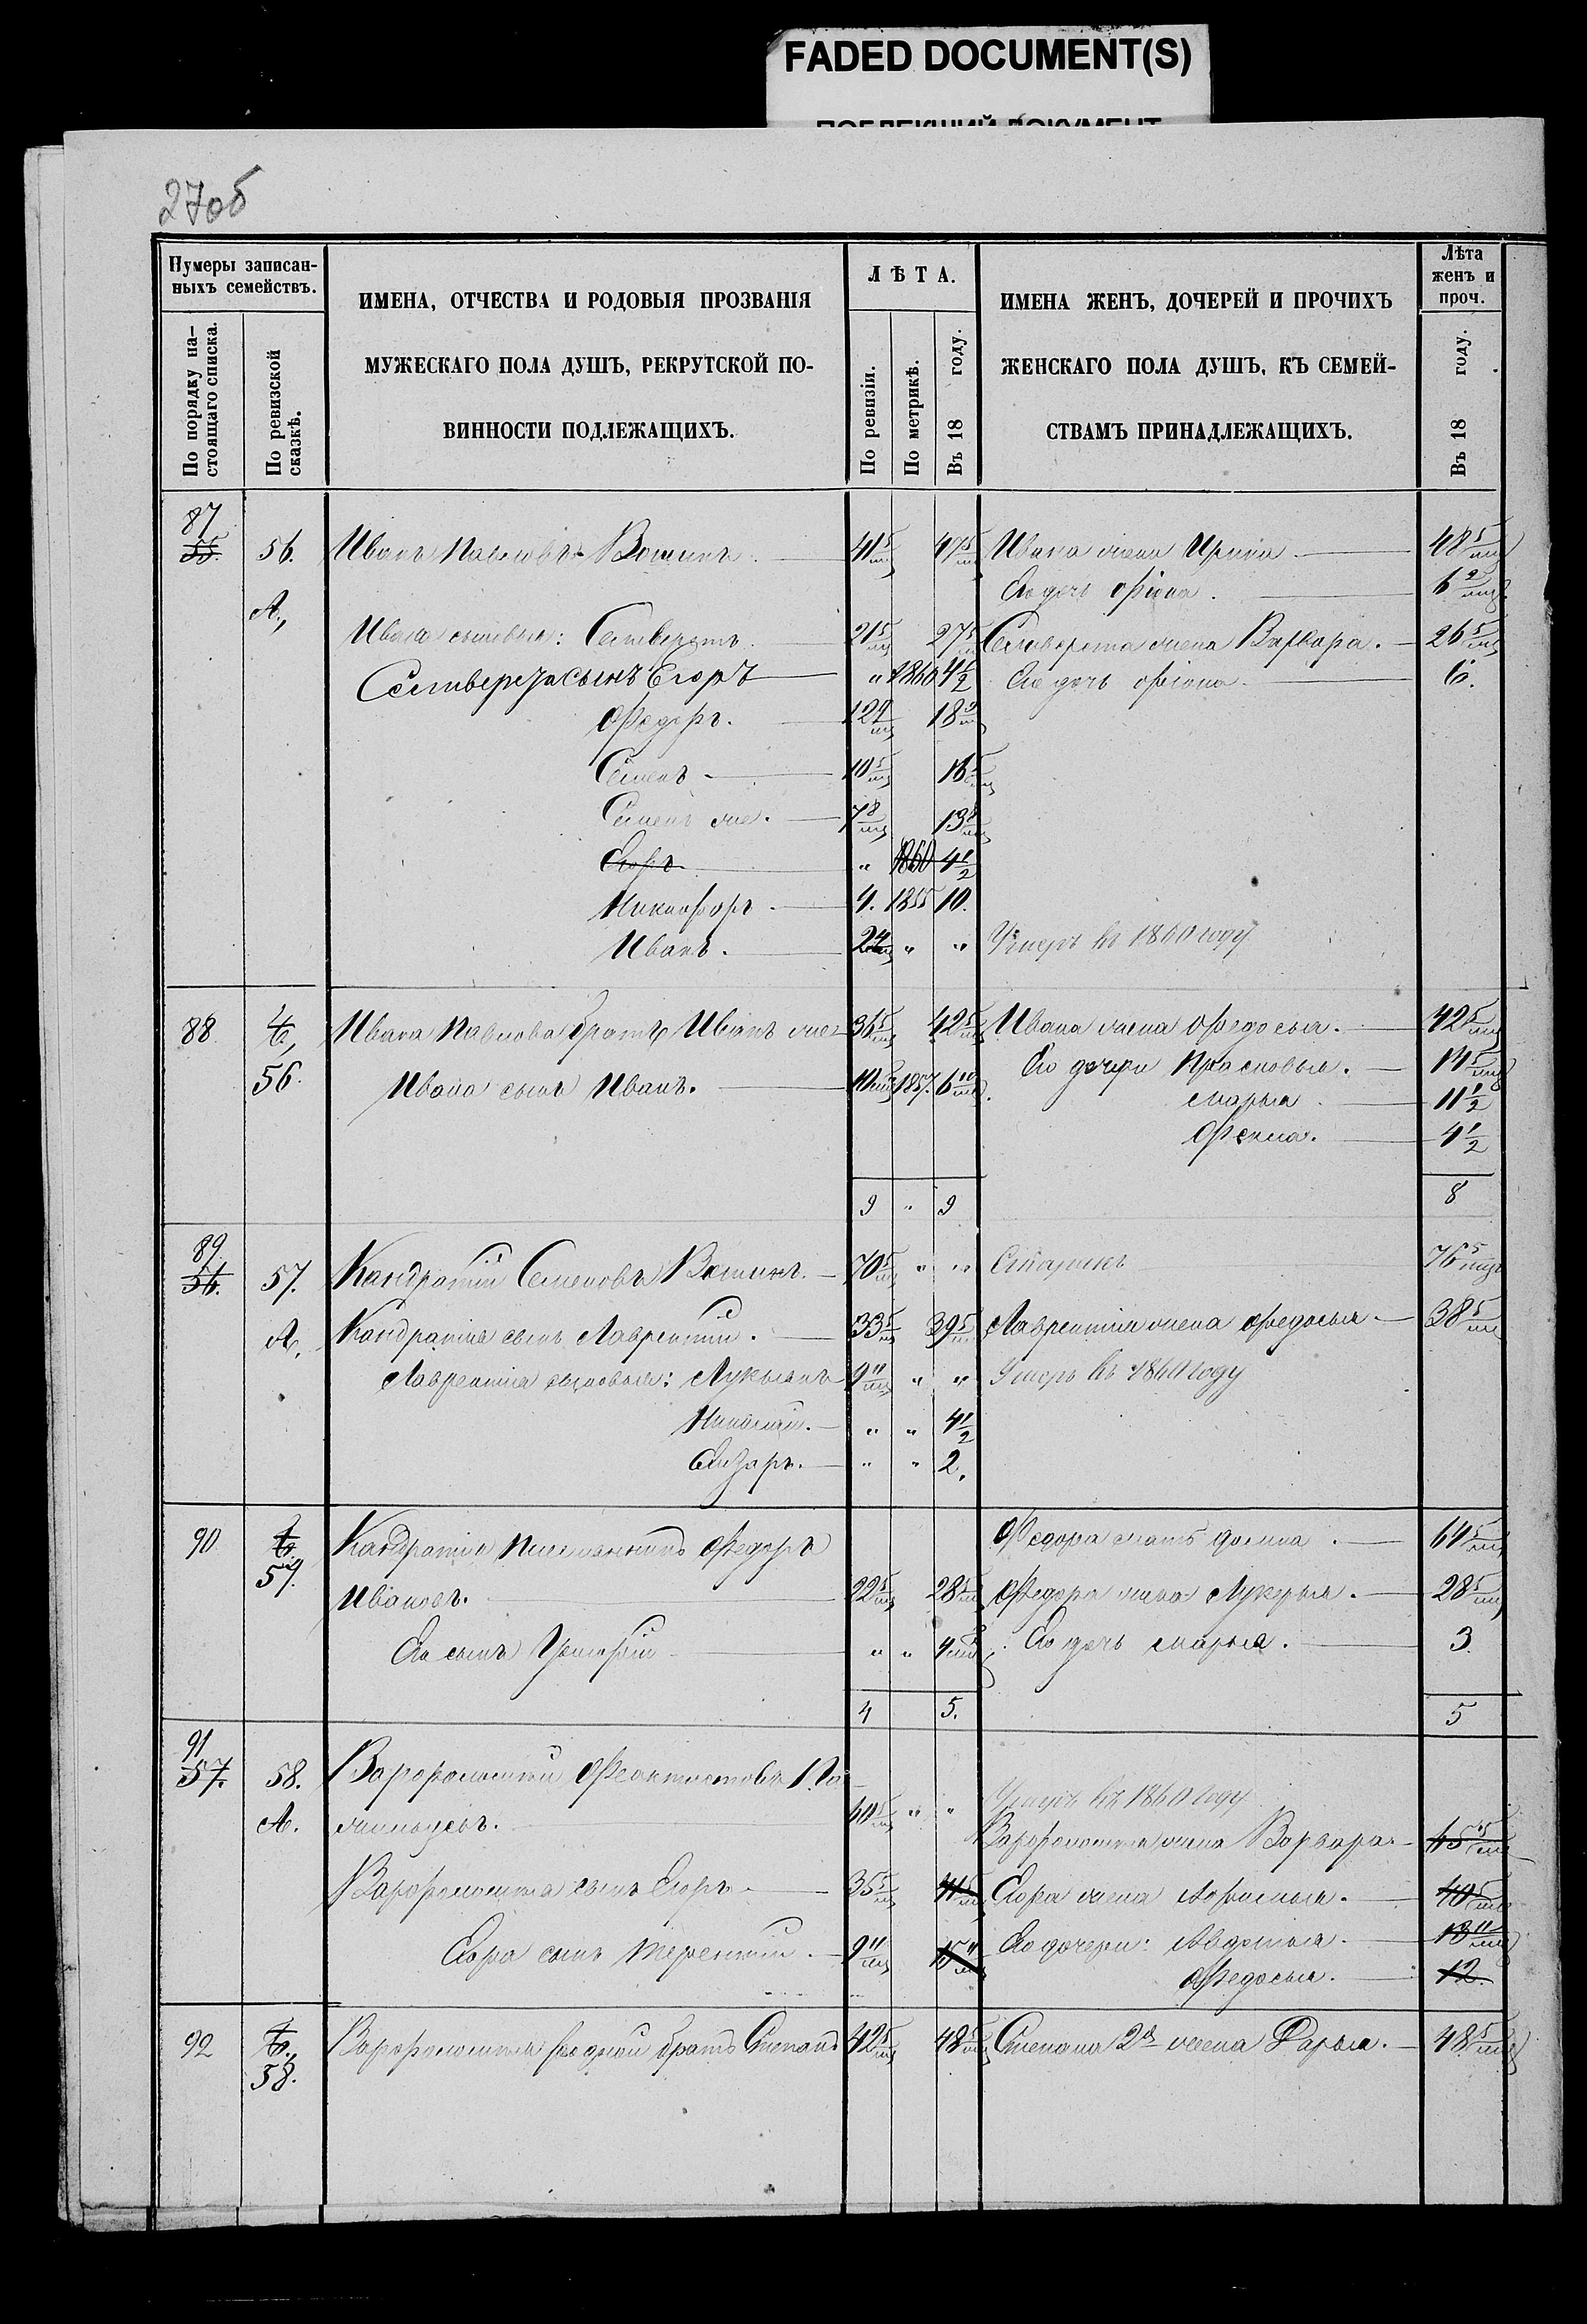 FADED DOCUMENT(S)
27об
Нумеры записан-
ныхъ семействъ.
По порядку на-
стоящаго списка.
По ревизской
сказкѣ.
ИМЕНА, ОТЧЕСТВА И РОДОВЫЯ ПРОЗВАНІЯ
МУЖЕСКАГО ПОЛА ДУШЪ, РЕКРУТСКОЙ ПО-
ВИННОСТИ ПОДЛЕЖАЩИХЪ.
ЛѢТА.
По ревизіи.
По метрикѣ.
Въ 18 году.
ИМЕНА ЖЕНЪ, ДОЧЕРЕЙ И ПРОЧИХЪ
ЖЕНСКАГО ПОЛА ДУШЪ, КЪ СЕМЕЙ-
СТВАМЪ ПРИНАДЛЕЖАЩИХЪ.
Лѣта
женъ и
проч.
Въ 18 году.
87
55. 56. Иванъ Павловъ 41 5/мц 47 5/мц Ивана жена Ирина 48 5/мц
А, Его дочь Фіона. 6
Ивана сыновья: Селиверстъ 21 5/мц 27 5/м Селиверста жена Варвара. 26 5/мц
Селиверста сынъ Егоръ " 1860 4 1/2 Его дочь Фіона 6.
Федоръ. 12 18
Семенъ 10 5/мц 16 5/мц
Семенъ же. 7 8/мц 13 8/мц
Егоръ " 1860 4 1/2
Никифоръ 4. 1855 10.
Иванъ. " " Умеръ въ 1860 году
88 Б, Ивана Павлова братъ Иванъ же 36 5/мц 42 5/мц Ивана жена Федосья. 42 5/мц
56. Ивана сынъ Иванъ. 1857. 6 Его дочери Прасковья. 14 5/мц
Марья 11 1/2
Фекла. 4 1/2
9 " 9 8
89
56. 57. Кандратій Семеновъ 70 5/мц " " Старикъ 76 5/мц
А, Кандратія сынъ Лаврентій. 33 5/м 39 5/м Лаврентія жена Федосья 38 5/мц
Лаврентія сыновья: Лукьянъ 9 11/мц " " Умеръ въ 1860 году
Николай. " " 4 1/2
Елизаръ. " " 2.
90 Б. Кандратія племянникъ Федоръ Федора мать 64 5/мц
57. Ивановъ. 22 5/мц 28 5/мц Федора жена Лукерья. 28 5/мц
Его сынъ " " Его дочь Марья. 3
4 5. 5
91
57. 58. Варфоломей Феоктистовъ
А. 40 5/мц " " Умеръ въ 1860 году
Варфоломея жена Варвара 45 5/мц
Варфоломея сынъ Егоръ 35 5/мц 41 5/мц Егора жена Афимья. 40 5/мц
Егора сынъ Терентій. 9 11/мц 15 11/мц Его дочери: Авдотья. 18 11/мц
Федосья. 12.
92 Б., Варфоломея родной братъ Степанъ 42 5/мц 48 5/мц Степана 2я жена Дарья. 48 5/мц
58.